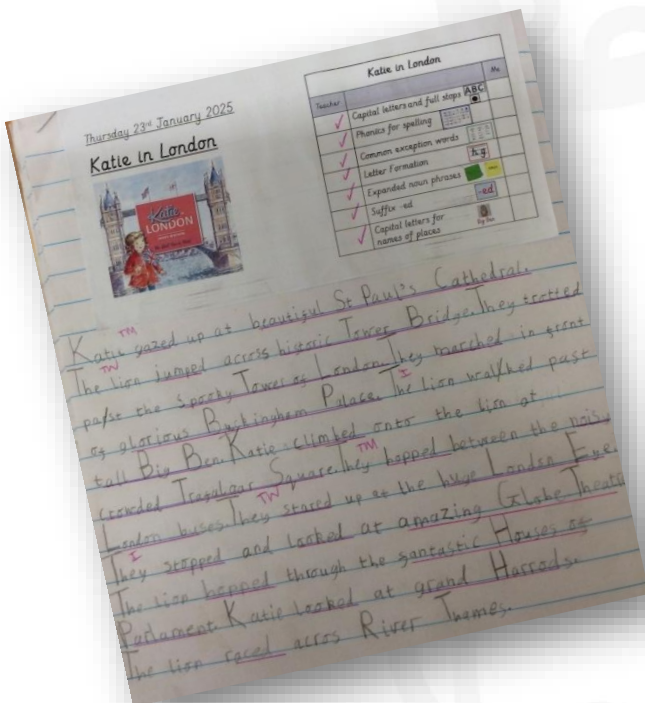 Thursday 23rd January 2025
Katie in London
Katie
LONDON
Katie in London
Teacher Me
Capital letters and full stops ABC
Phonics for spelling
Common exception words
Letter Formation h g
Expanded noun phrases
Suffix -ed -ed
Capital letters for
names of places Big Ben
Katie gazed up at beautiful St Paul's Cathedral.
TM
The lion jumped across historic Tower Bridge. They trotted
TW
past the spooky Tower of London. They marched in front
of glorious Buckingham Palace. The lion walked past
I
tall Big Ben. Katie climbed onto the lion at
crowded Trafalgar Square. They hopped between the
TM
London buses. They stared up at the huge London Eye.
TW
They stopped and looked at amazing Globe
I
The lion hopped through the fantastic Houses of
Parlament. Katie looked at grand Harrods.
The lion raced acros River Thames.